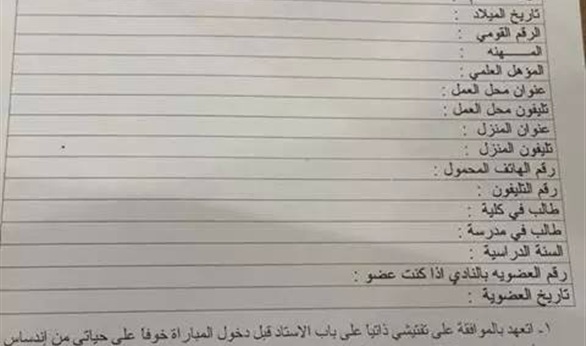 تاريخ الميلاد :
الرقم القومي :
المـــــهنه :
المؤهل العلمي :
عنوان محل العمل :
تليفون محل العمل :
عنوان المنزل :
تليفون المنزل :
رقم الهاتف المحمول :
رقم التليفون :
طالب في كلية :
طالب في مدرسة :
السنة الدراسية :
رقم العضويه بالنادي اذا كنت عضو :
تاريخ العضوية :
١- اتعهد بالموافقة على تفتيشي ذاتياً على باب الاستاد قبل دخول المباراة خوفاً على حياتي من إندساس